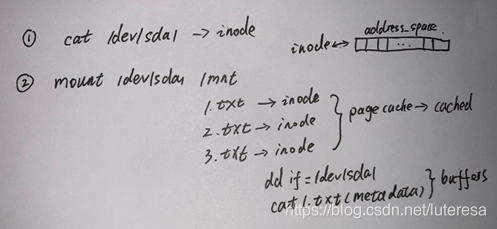 ① cat /dev/sda1 → inode
inode ↔ address_space
② mount /dev/sda1 /mnt
1.txt → inode
2.txt → inode
3.txt → inode
page cache → cached
dd if=/dev/sda1
cat 1.txt(metadata)
buffers
https://blog.csdn.net/luteresa